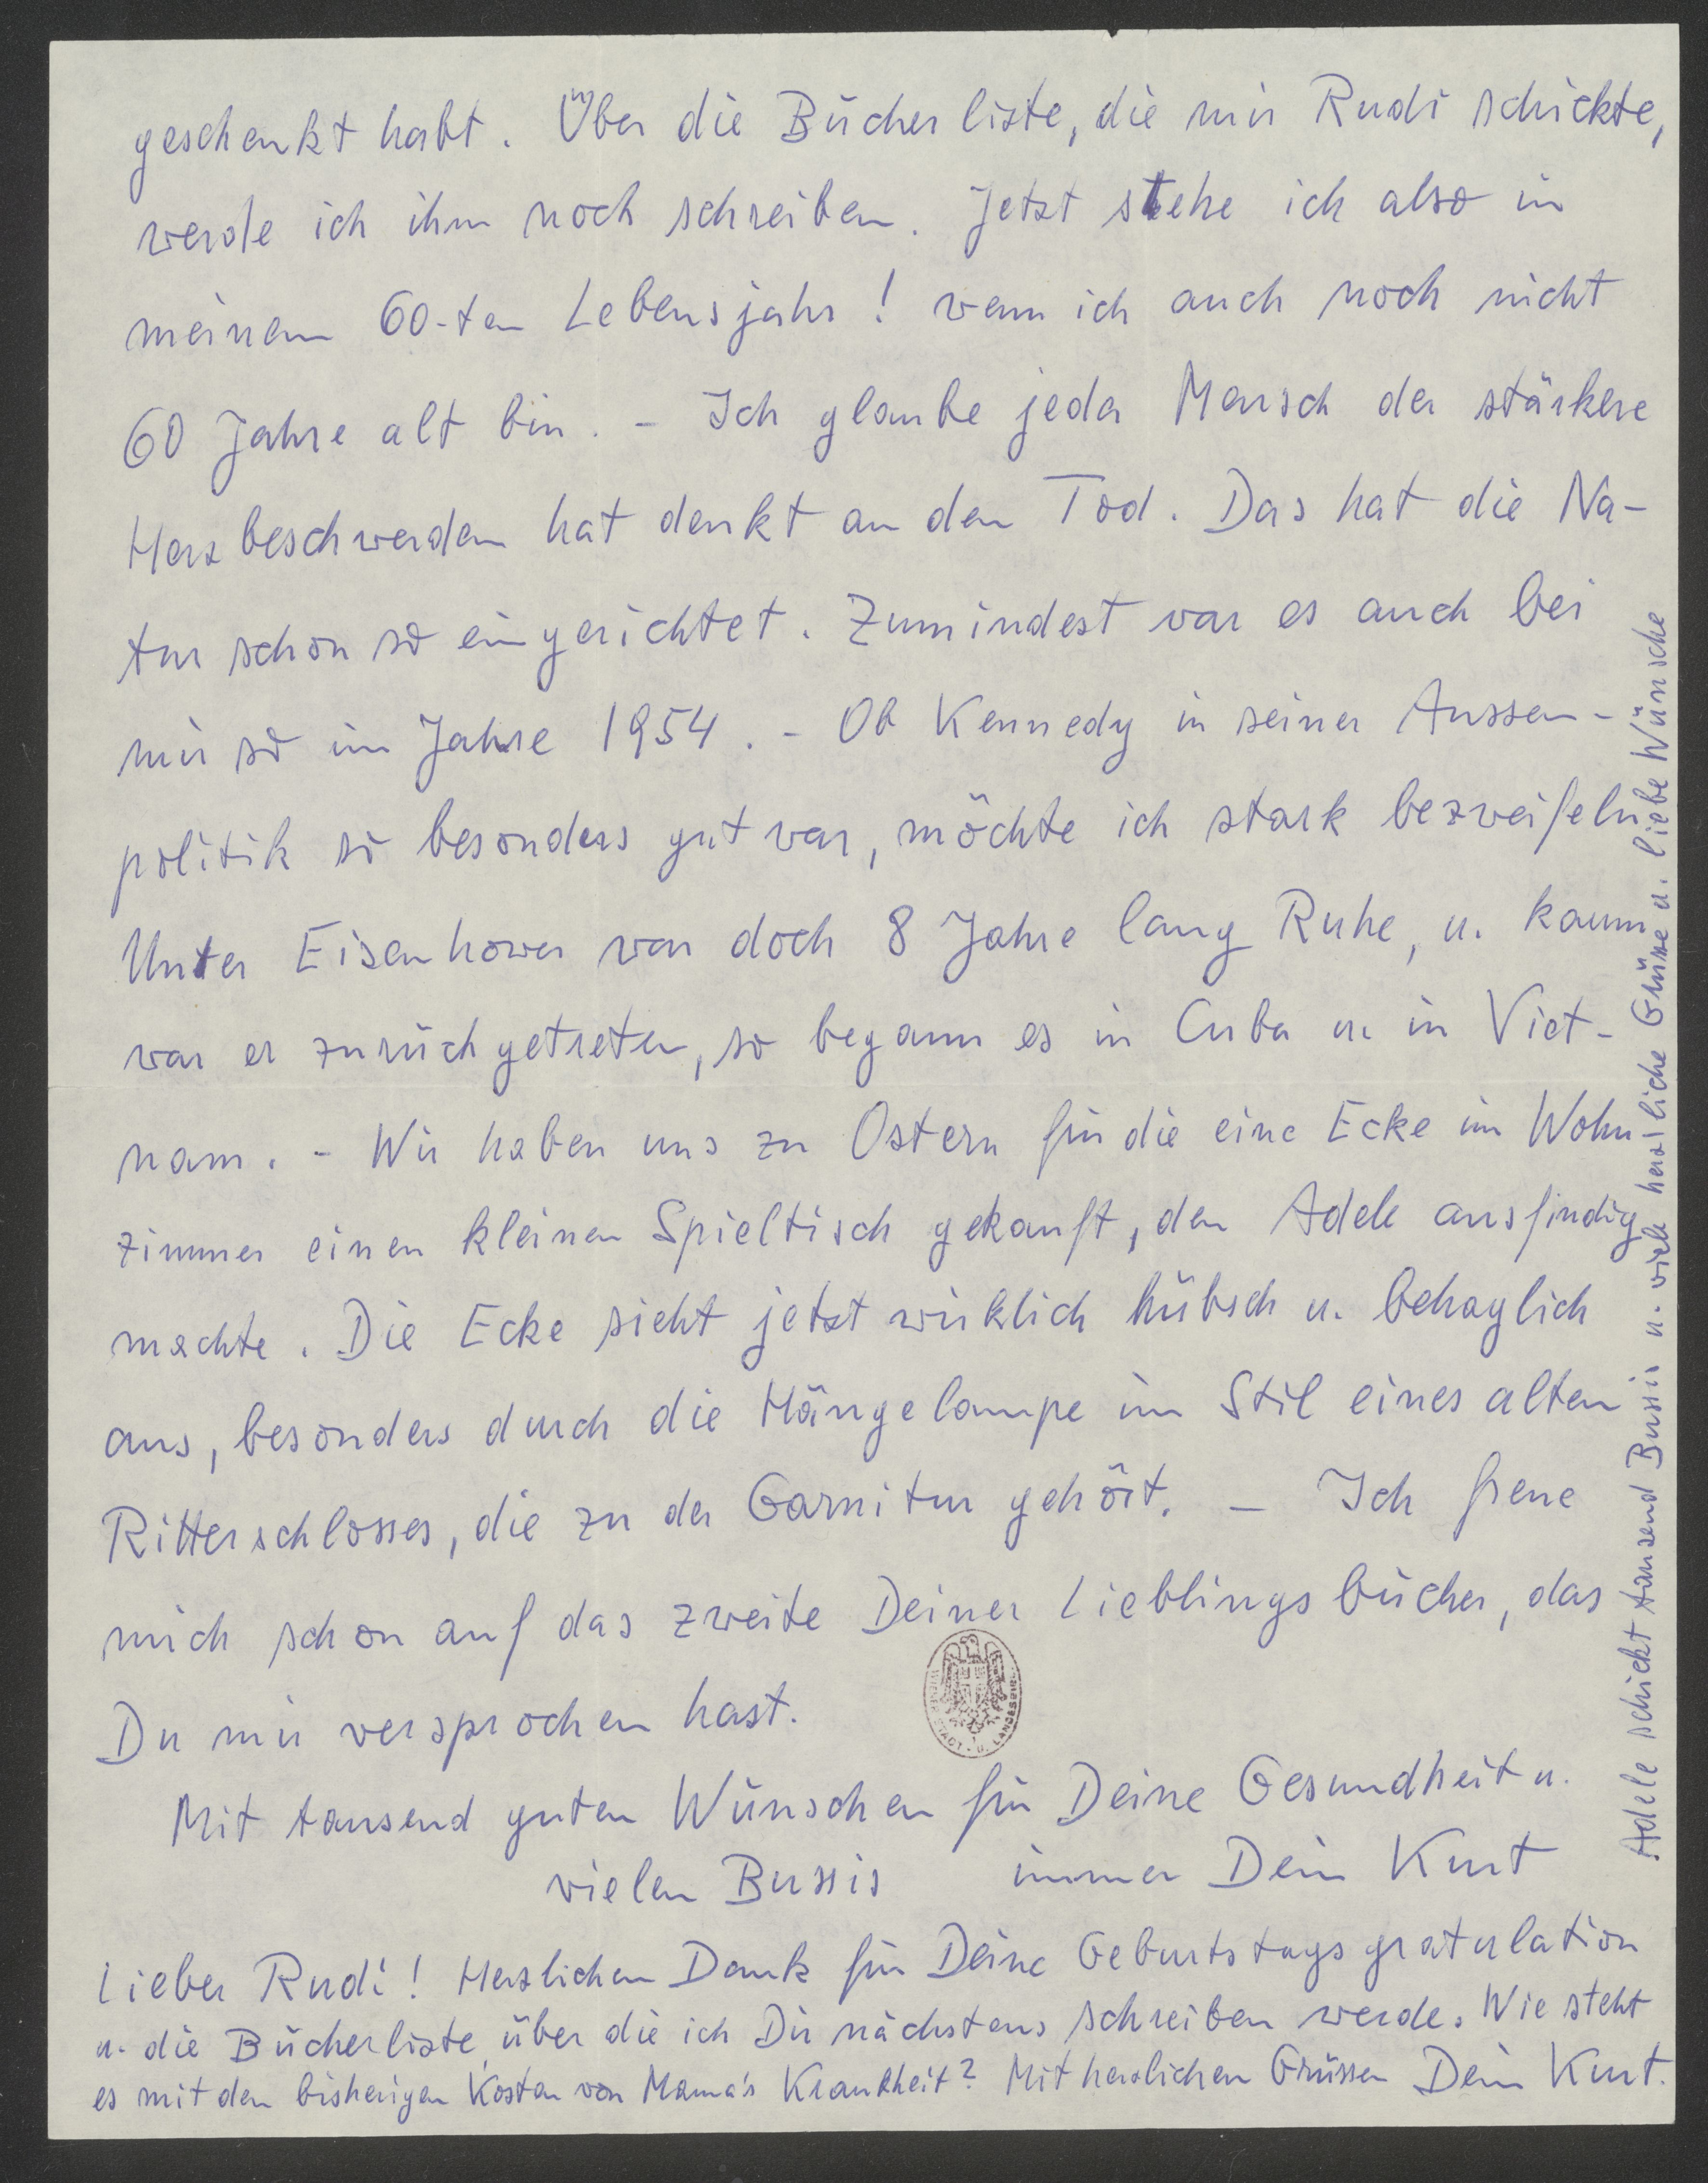 geschenkt habt. Über die Bücherliste, die mir Rudi schickte,
werde ich ihm noch schreiben. Jetzt stehe ich also in
meinem 60-ten Lebensjahr! wenn ich auch noch nicht
60 Jahre alt bin. - Ich glaube jeder Mensch der stärkere
Herzbeschwerden hat denkt an den Tod. Das hat die Na-
tur schon so eingerichtet. Zumindest war es auch bei
mir so im Jahre 1954. - Ob Kennedy in seiner Aussen-
politik so besonders gut war, möchte ich stark bezweifeln
Unter Eisenhower war doch 8 Jahre lang Ruhe, u. kaum
war er zurückgetreten, so begann es in Cuba u. in Viet-
nam. - Wir haben uns zu Ostern für die eine Ecke im Wohn-
zimmer einen kleinen Spieltisch gekauft, den Adele ausfindig
machte. Die Ecke sieht jetzt wirklich hübsch u. behaglich
aus, besonders durch die Hängelampe im Stil eines alten
Ritterschlosses, die zu der Garnitur gehört. - Ich freue
mich schon auf das zweite Deiner Lieblingsbücher, das
Du mir versprochen hast.
Mit tausend guten Wünschen für Deine Gesundheit u.
vielen Bussis immer Dein Kurt
Lieber Rudi! Herzlichen Dank für Deine Geburtstagsgratulation
u. die Bücherliste, über die ich Dir nächstens schreiben werde. Wie steht
es mit den bisherigen Kosten von Mama's Krankheit? Mit herzlichen Grüssen Dein Kurt.
Adele schickt tausend Bussis u. viele herzliche Grüsse u. liebe Wünsche